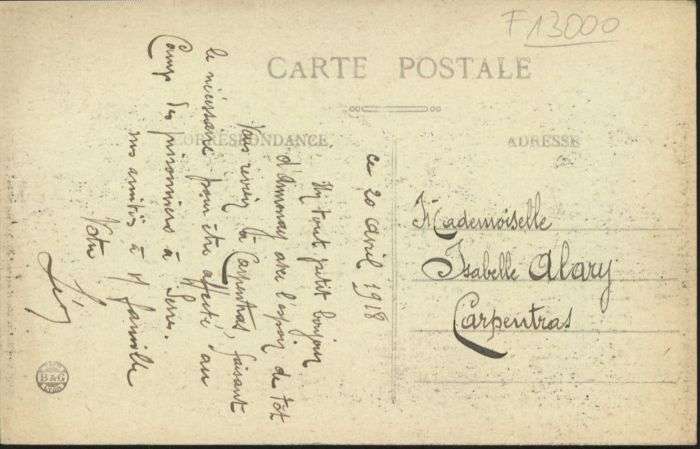 F 13000
CARTE POSTALE
CORRESPONDANCE
ADRESSE
ce 20 avril 1918
Un tout petit bonjour
d'Annonay avec l'espoir de tôt
vous revoir à Carpentras, faisant
le nécessaire pour être affecté au
Camp des prisonniers à Serres.
mes amitiés à V. famille
Votre
Mademoiselle
Isabelle Alary
Carpentras
B&G